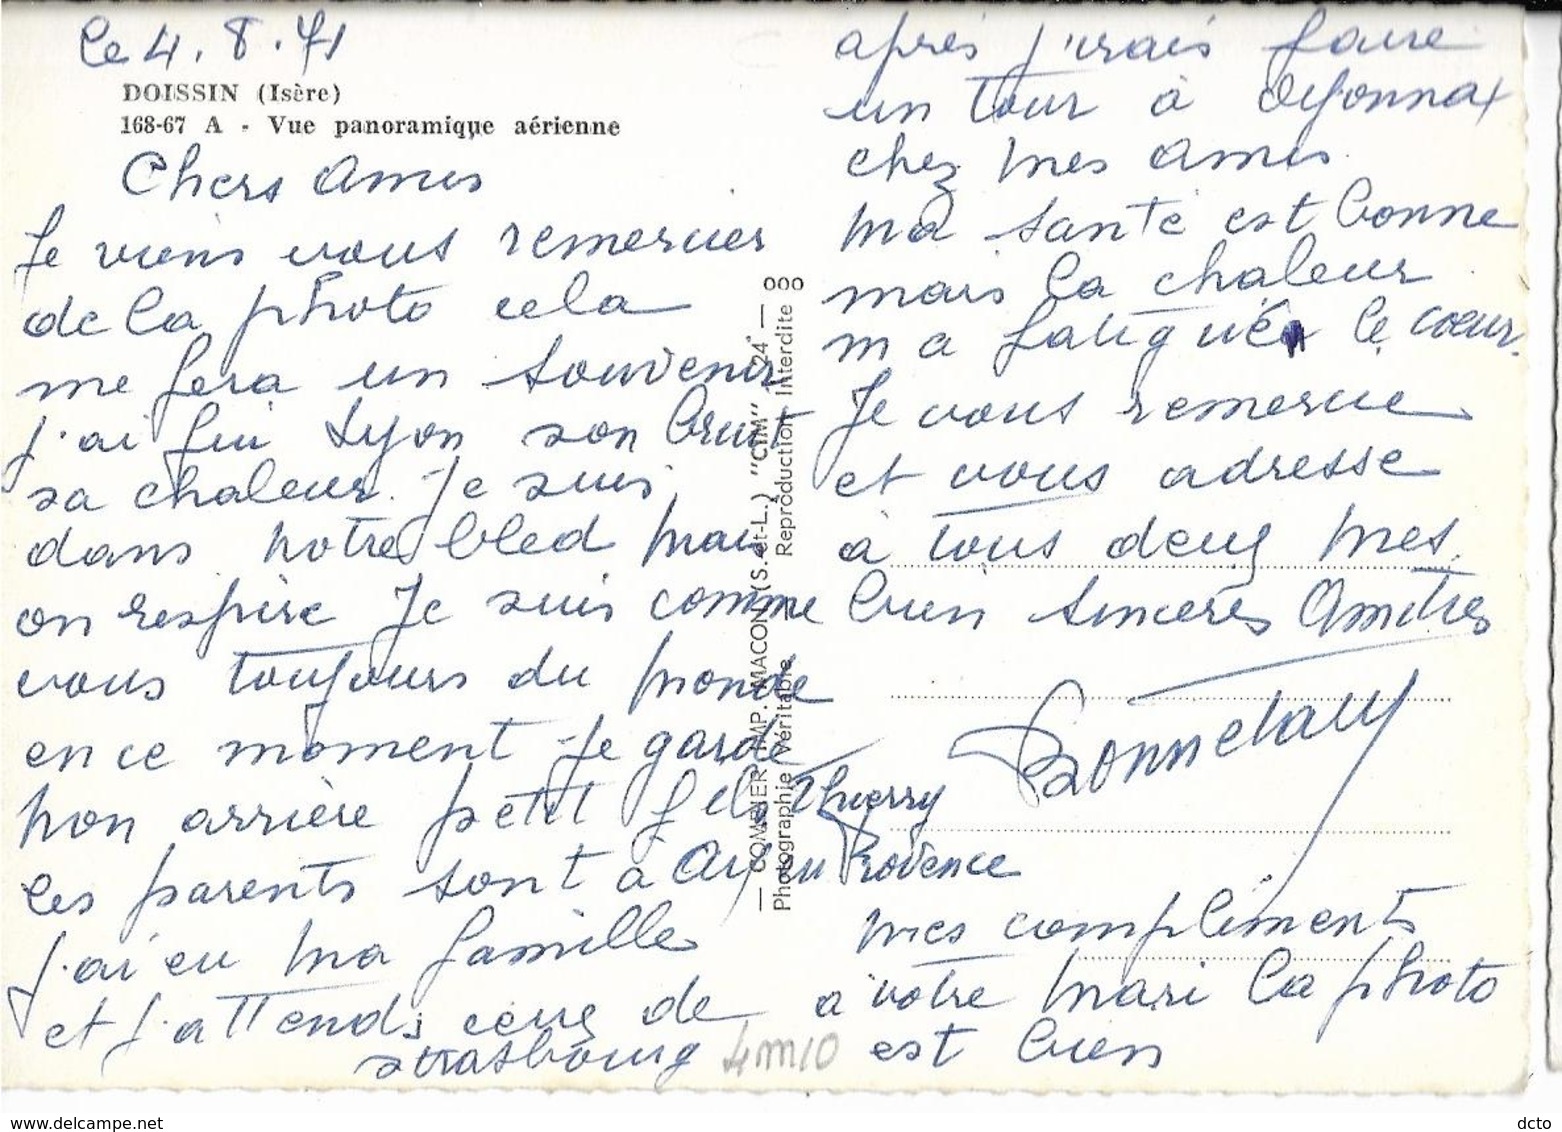 le 4.8.71
DOISSIN (Isère)
168-67 A - Vue panoramique aérienne
Chers Amis
Je viens vous remercier
de la photo cela
me fera un souvenir
j'ai fui Lyon son bruit
sa chaleur. Je suis
dans notre bled mais
on respire Je suis comme
vous toujours du monde
en ce moment je garde
mon arrière petit fils Thierry
les parents sont à Aix en Provence
j'ai eu ma famille
et j'attends ceux de
strasbourg
4m10
après j'irais faire
un tour à Oyonnax
chez mes amis
ma santé est bonne
mais la chaleur
ma fatigué le coeur.
Je vous remercie
et vous adresse
à tous deux mes
bien sincères Amitiés
Bonnetaly
mes compliments
à votre mari la photo
est bien
— COMBIER IMP. MACON (S.-et-L.) "CIM" 24 —
Photographie Véritable Reproduction Interdite
ooo
www.delcampe.net
dcto